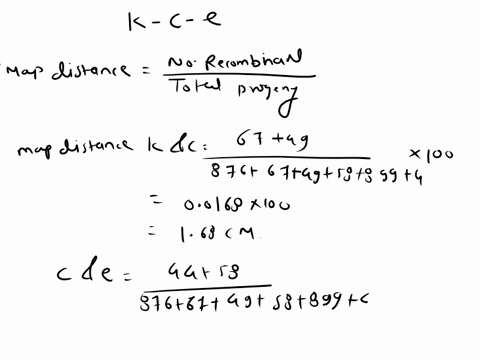 K - C - e
Map distance = No. Recombinan / Total progeny
map distance K & C = 67 + 49 / 876 + 67 + 49 + 58 + 899 + 4 × 100
= 0.0168 × 100
= 1.68 CM
C & e = 44 + 58 / 876 + 67 + 49 + 58 + 899 + 4